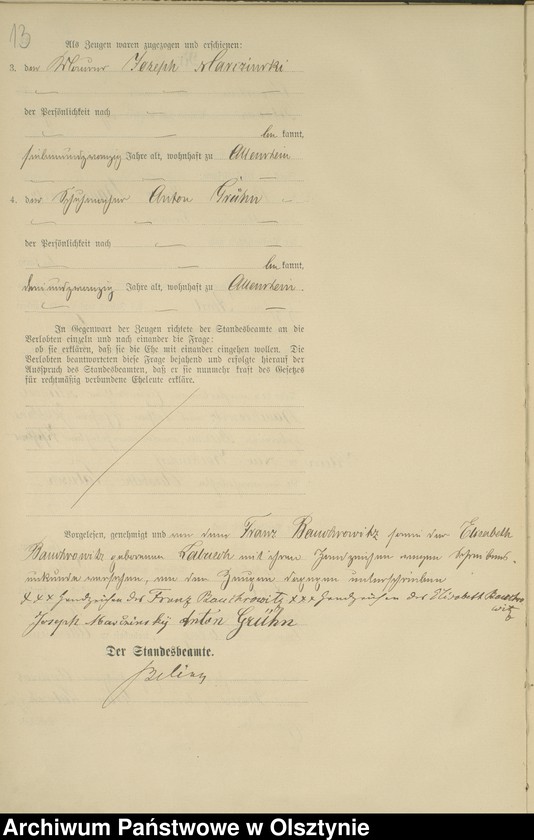 13
Als Zeugen waren zugezogen und erschienen:
3. der Maurer Joseph Marczinski
der Persönlichkeit nach
be kannt,
siebenundzwanzig Jahre alt, wohnhaft zu Allenstein
4. der Schuhmacher Anton Grühn
der Persönlichkeit nach
be kannt,
dreiundzwanzig Jahre alt, wohnhaft zu Allenstein
In Gegenwart der Zeugen richtete der Standesbeamte an die
Verlobten einzeln und nach einander die Frage:
ob sie erklären, daß sie die Ehe mit einander eingehen wollen. Die
Verlobten beantworteten diese Frage bejahend und erfolgte hierauf der
Ausspruch des Standesbeamten, daß er sie nunmehr kraft des Gesetzes
für rechtmäßig verbundene Eheleute erkläre.
Vorgelesen, genehmigt und von dem Franz Bauchrowitz sowie der Elisabeth
Bauchrowitz geborenen Labusch mit ihren Handzeichen wegen Schreibens-
unkunde versehen, von den Zeugen dagegen unterschrieben
+++ Handzeichen des Franz Bauchrowitz +++ Handzeichen der Elisabeth Bauchro
witz
Joseph Marczinsky Anton Grühn
Der Standesbeamte.
Archiwum Państwowe w Olsztynie